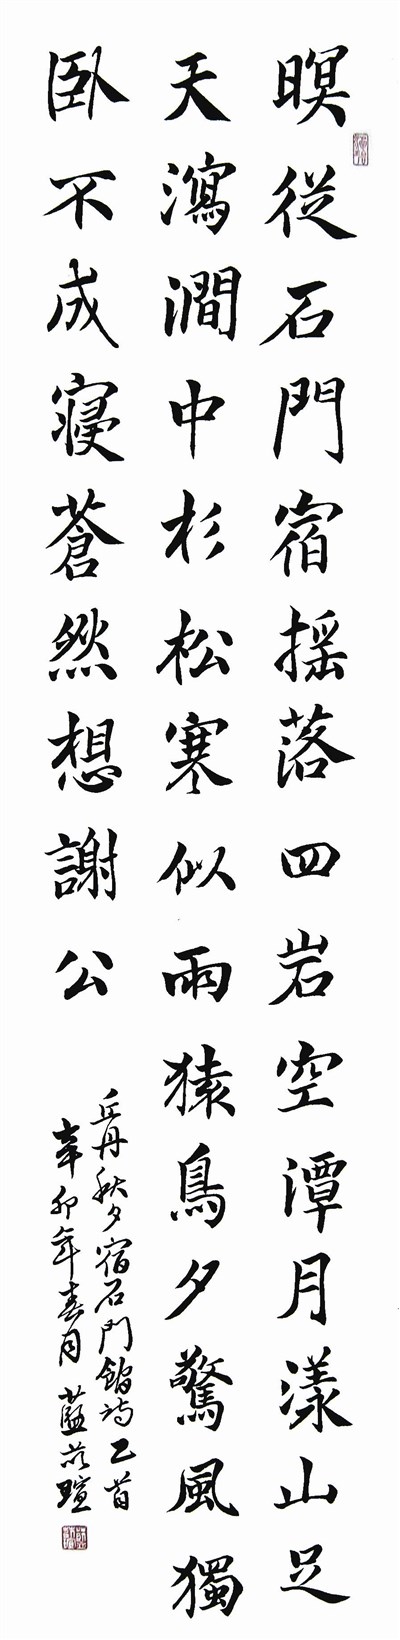 暝從石門宿搖落四岩空潭月漾山足
天瀉澗中杉松寒似雨猿鳥夕驚風獨
臥不成寢蒼然想謝公
丘丹秋夕宿石門館詩乙首
辛卯年春月藍芷瑄